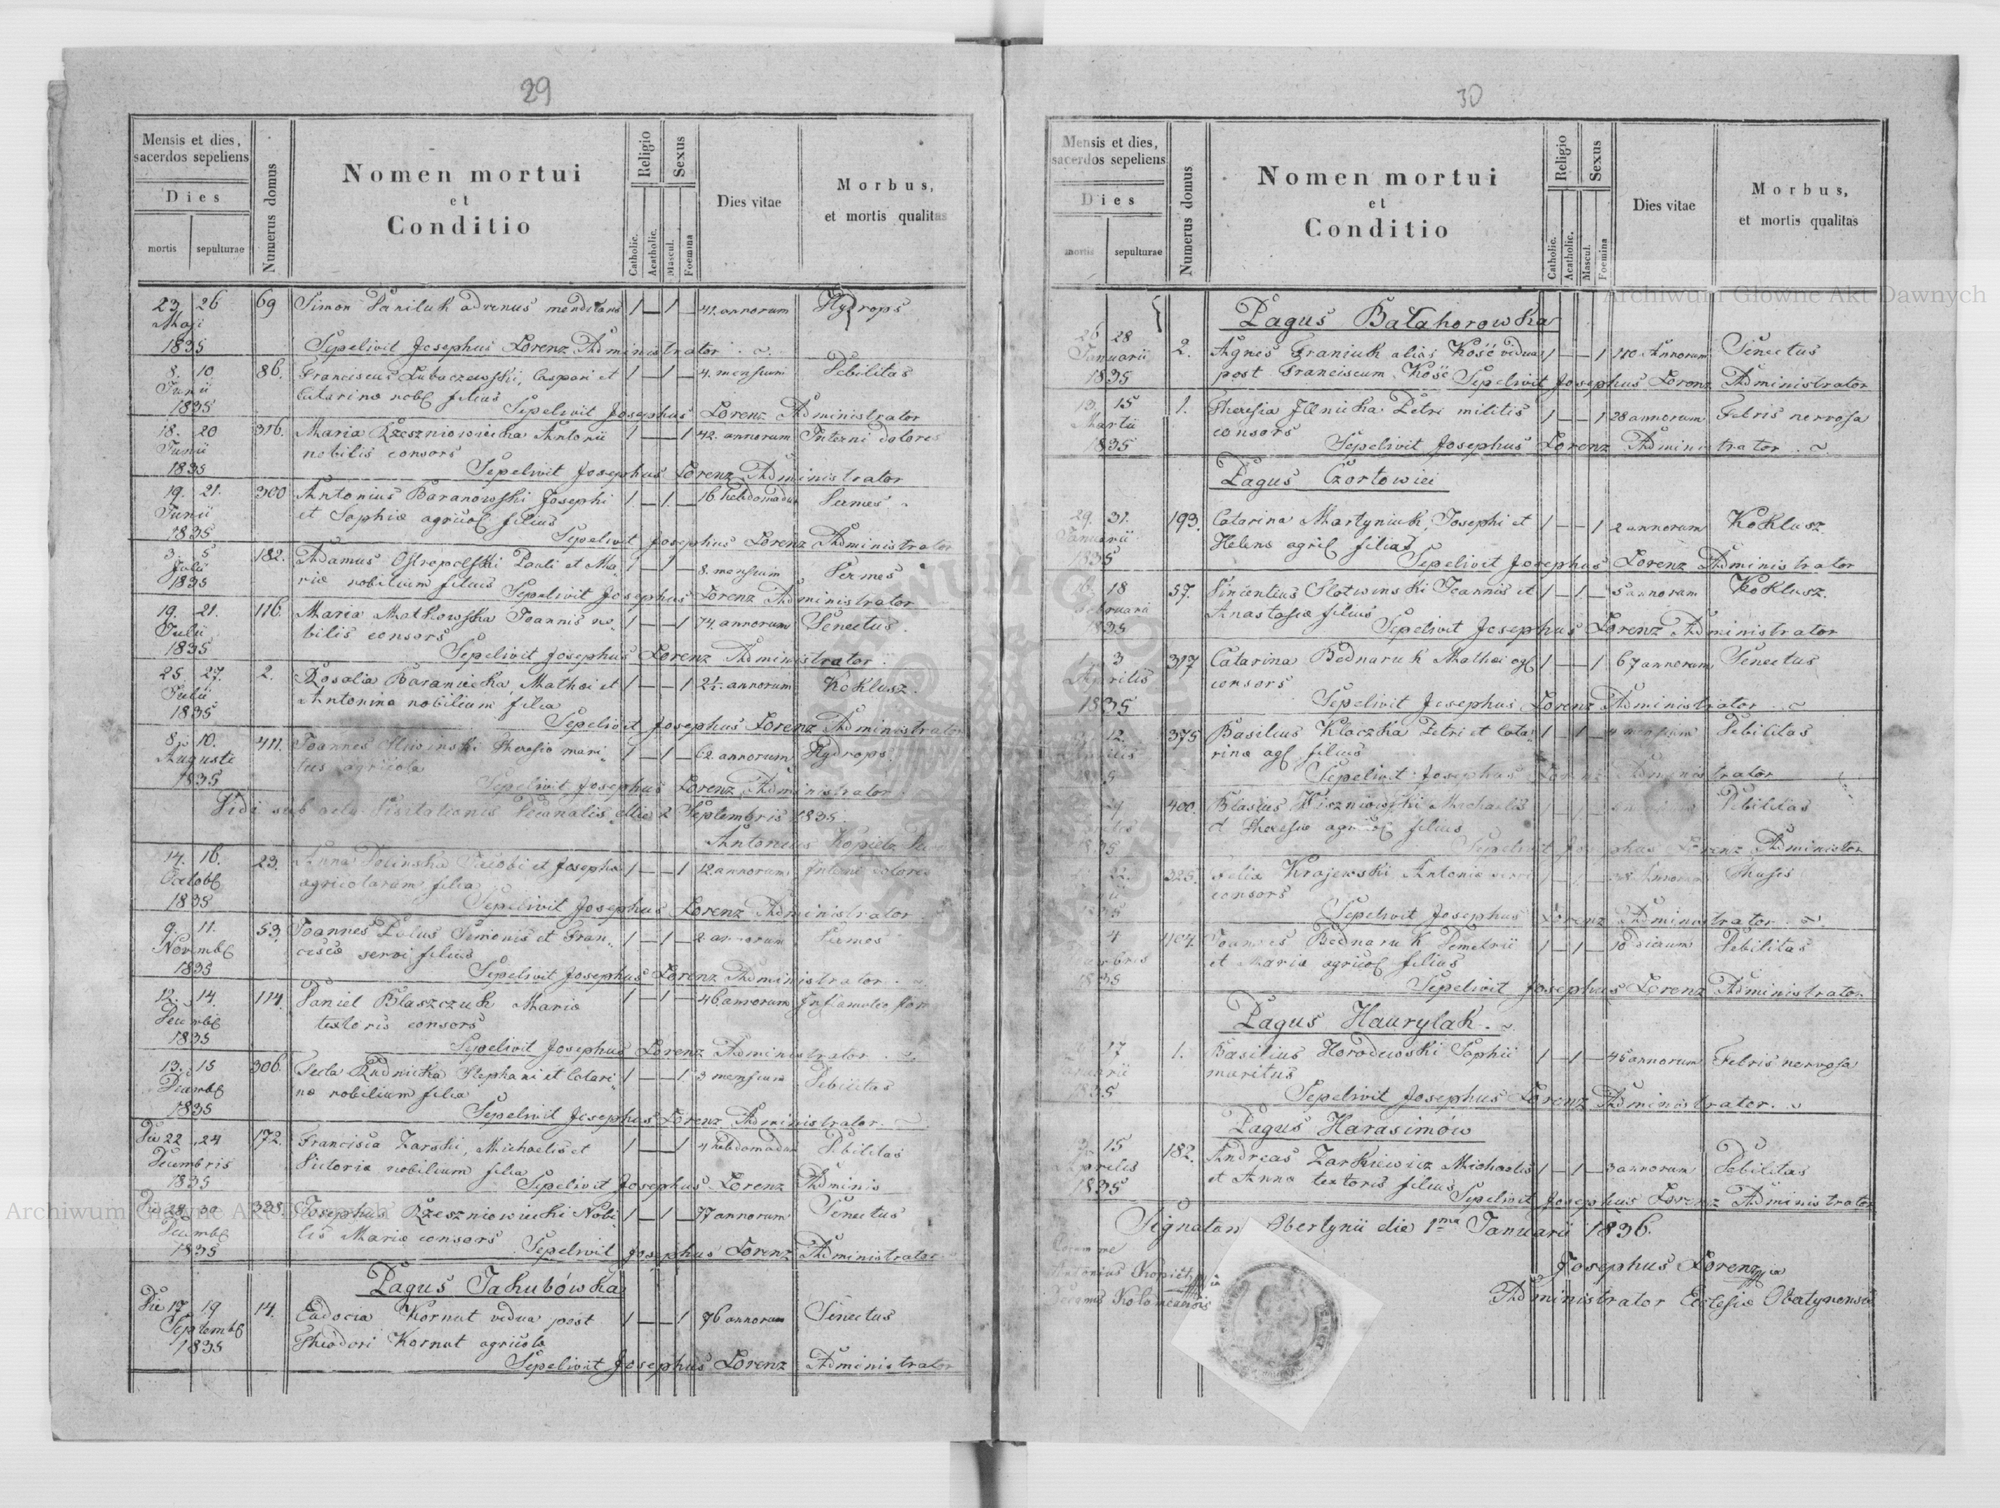 29
Mensis et dies, sacerdos sepeliens
Dies
mortis sepulturae
Numerus domus
Nomen mortui
et
Conditio
Religio
Catholic. Acatholic.
Sexus
Mascul. Foemina
Dies vitae
Morbus,
et mortis qualitas
23 26 69 Simon Daniluk advenus mendicans 1 — 1 — 41. annorum Hydrops
Maji
1835 Sepelivit Josephus Lorenz Administrator
8. 10 86. Franciscus Lubaczewski, Caspari et 1 — 1 — 4. mensium Debilitas
Junii Catarina nobil filius
1835 Sepelivit Josephus Lorenz Administrator
18. 20 316. Maria Rzeszniowiecka Antonii 1 — — 1 42. annorum Interni dolores
Junii nobilis consors
1835 Sepelivit Josephus Lorenz Administrator
19. 21. 300 Antonius Baranowski Josephi 1 — 1 — 16 hebdomadum
Junii et Sophia agricol filius
1835 Sepelivit Josephus Lorenz Administrator
3. 5 182. Adamus Ostropolski Pauli et Ma- 1 — 1 — 8. mensium
Julii ria nobilium filius Sepelivit Josephus Lorenz Administrator
1835
19. 21. 116. Maria Malkowska Joannis no- 1 — — 1 74. annorum Senectus.
Julii bilis consors
1835 Sepelivit Josephus Lorenz Administrator
25. 27. 2. Rosalia Baraniecka, Mathei et 1 — — 1 2½. annorum Koklusz.
Julii Antonina nobilium filia
1835 Sepelivit Josephus Lorenz Administrator
8. 10. 411. Joannes Sliwinski Theresia mari- 1 — 1 — 62 annorum Hydrops
Auguste tus agricola
1835 Sepelivit Josephus Lorenz Administrator
Vidi sub actu Visitationis Decanalis die 2 Septembris 1835.
Antonius Kopietz
14. 16. 23. Anna Jacobi et Josepha 1 — — 1 12 annorum Interni dolores
Octobl agricolarum filia
1835 Sepelivit Josephus Lorenz Administrator
9. 11. 53. Joannes Lulus Simonis et Fran- 1 — 1 — 2 annorum
Novembl cisca servi filius
1835 Sepelivit Josephus Lorenz Administrator
12. 14. 114. Daniel Blaszczuk Maria 1 — 1 — 46. annorum
Decembl textoris consors
1835 Sepelivit Josephus Lorenz Administrator
13. 15 306. Tecla Rudnicka Stephani et Catari- 1 — — 1 3 mensium Debilitas
Decembl na nobilium filia
1835 Sepelivit Josephus Lorenz Administrator
Die 22 24 172. Francisca Zarski, Michaelis et 1 — — 1 4 hebdomadum Debilitas
Decembris Victoria nobilium filia
1835 Sepelivit Josephus Lorenz Adminis
Die 28 30 328. Josephus Rzeszniowiecki Nobi- 1 — 1 — 77 annorum Senectus
Decembl lis Maria consors
1835 Sepelivit Josephus Lorenz Administrator
Pagus Jakubówka
Die 17 19 14. Eudocia Kornut vidua post 1 — — 1 76 annorum Senectus
Septembl Theodori Kornut agricola
1835 Sepelivit Josephus Lorenz Administrator
30
Mensis et dies, sacerdos sepeliens
Dies
mortis sepulturae
Numerus domus
Nomen mortui
et
Conditio
Religio
Catholic. Acatholic.
Sexus
Mascul. Foemina
Dies vitae
Morbus,
et mortis qualitas
Pagus Bałahorowka
26 28 2. Agnes Franiuk alias Kość vidua 1 — — 1 110 Annorum Senectus
Januarii post Franciscum Kość Sepelivit Josephus Lorenz Administrator
1835
13. 15 1. Theresia Petri militis 1 — — 1 28 annorum Febris nervosa
Martii consors
1835 Sepelivit Josephus Lorenz Administrator
Pagus Czortowiec
29. 31. 193. Catarina Martyniuk, Josephi et 1 — — 1 2 annorum Koklusz
Januarii Helena agril filia
1835 Sepelivit Josephus Lorenz Administrator
18 57. Vincentius Slotwinski Joannis et 1 — 1 — 5 annorum Koklusz.
Februarii Anastasia filius
1835 Sepelivit Josephus Lorenz Administrator
1. 3 317 Catarina Bednaruk Mathei agl 1 — — 1 67 annorum Senectus
Aprilis consors
1835 Sepelivit Josephus Lorenz Administrator
12. 375 Basilius Kloczka Petri et Cata- 1 — 1 — Debilitas
rina agl filius
Sepelivit Josephus Lorenz Administrator
400. Blasius Wiszniowski Michaelis Debilitas
et Theresia agricol filius
1835 Sepelivit Josephus Lorenz Administor
325. Felix Krajewski Antonia Annorum Phtisis
consors
1835 Sepelivit Josephus Lorenz Administrator
4 404. Joannes Bednaruk Demetrii 1 — 1 — 10 dierum Debilitas
et Maria agricol filius
1835 Sepelivit Josephus Lorenz Administrator
Pagus Hauryłak.
17 1. Basilius Horodewski Sophii 1 — 1 — 45 annorum Febris nervosa
maritus
1835 Sepelivit Josephus Lorenz Administrator.
Pagus Harasimów
15 182. Andreas Zarkiewicz Michaelis 1 — 1 — 3 annorum Debilitas
Aprilis et Anna textoris filius
1835 Sepelivit Josephus Lorenz Administrator
Signatum Obertynii die 1ma Januarii 1836.
Coram me
Antonius Kopietz
Decanus Kolomeensis
Josephus Lorenz
Administrator Eclesia Obertynensis
Archiwum Główne Akt Dawnych
Archiwum Główne Akt Dawnych